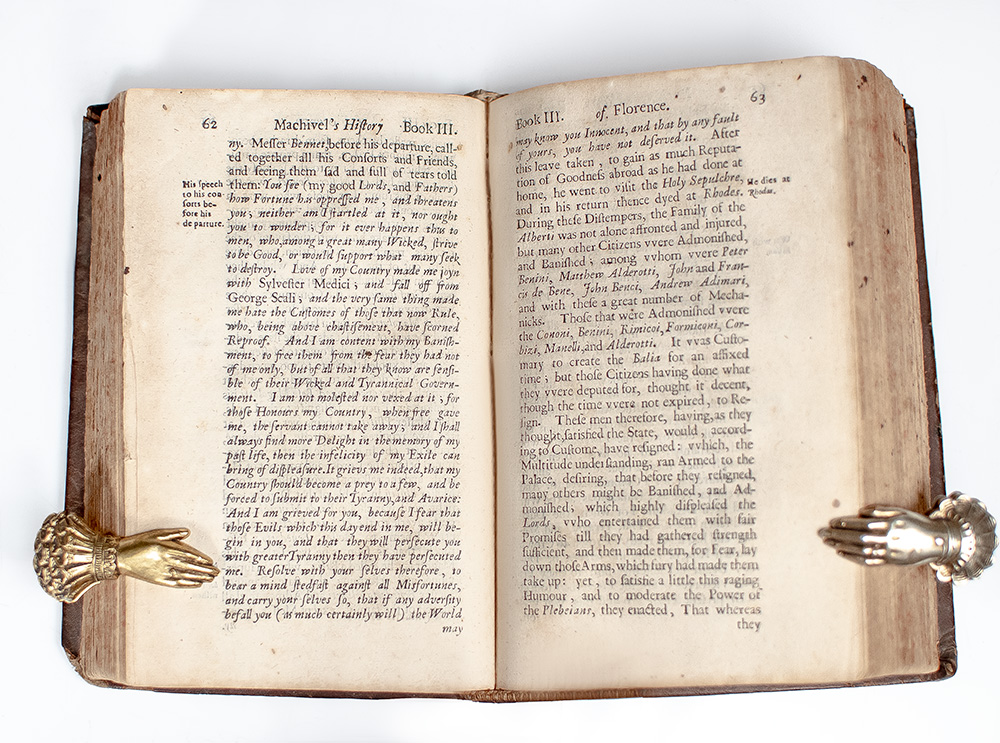 62 Machivel's Hiſtory Book III.
ny. Meſſer Bennei, before his departure, call-
ed together all his Conſorts and Friends,
and ſeeing them ſad and full of tears told
them: You ſee (my good Lords, and Fathers)
how Fortune has oppreſſed me, and threatens
you; neither am I ſtartled at it, nor ought
you to wonder; for it ever happens thus to
men, who, among a great many Wicked, ſtrive
to be Good, or would ſupport what many ſeek
to deſtroy. Love of my Country made me joyn
with Sylveſter Medici; and fall off from
George Scali; and the very ſame thing made
me hate the Cuſtomes of thoſe that now Rule,
who, being above chaſtiſement, have ſcorned
Reproof. And I am content with my Baniſh-
ment, to free them from the fear they had not
of me only, but of all that they know are ſenſi-
ble of their Wicked and Tyrannical Govern-
ment. I am not moleſted nor vexed at it; for
thoſe Honours my Country, when free gave
me, the ſervant cannot take away; and I ſhall
always find more Delight in the memory of my
paſt life, then the infelicity of my Exile can
bring of diſpleaſure. It grieves me indeed, that my
Country ſhould become a prey to a few, and be
forced to ſubmit to their Tyranny, and Avarice:
And I am grieved for you, becauſe I fear that
thoſe Evils which this day end in me, will be-
gin in you, and that they will perſecute you
with greater Tyranny then they have perſecuted
me. Reſolve with your ſelves therefore, to
bear a mind ſtedfaſt againſt all Misfortunes,
and carry your ſelves ſo, that if any adverſity
befall you (as much certainly will) the World
may
His ſpeech
to his con-
ſorts be-
fore his
departure.
Book III. of Florence. 63
may know you Innocent, and that by any fault
of yours, you have not deſerved it. After
this leave taken, to gain as much Reputa-
tion of Goodneſs abroad as he had done at
home, he went to viſit the Holy Sepulchre,
and in his return thence dyed at Rhodes.
During theſe Diſtempers, the Family of the
Alberti was not alone affronted and injured,
but many other Citizens vvere Admoniſhed,
and Baniſhed; among vvhom vvere Peter
Benini, Matthew Alderotti, John and Fran-
cis de Bene, John Benci, Andrew Adimari,
and with theſe a great number of Mecha-
nicks. Thoſe that were Admoniſhed vvere
the Cononi, Benini, Rimicoi, Formiconi, Cor-
bizi, Manelli, and Alderotti. It vvas Cuſto-
mary to create the Balia for an affixed
time; but thoſe Citizens having done what
they vvere deputed for, thought it decent,
though the time vvere not expired, to Re-
ſign. Theſe men therefore, having, as they
thought, ſatisfied the State, would, accord-
ing to Cuſtome, have reſigned: vvhich, the
Multitude underſtanding, ran Armed to the
Palace, deſiring, that before they reſigned,
many others might be Baniſhed, and Ad-
moniſhed; which highly diſpleaſed the
Lords, vvho entertained them with fair
Promiſes till they had gathered ſtrength
ſufficient, and then made them, for Fear, lay
down thoſe Arms, which fury had made them
take up: yet, to ſatisfie a little this raging
Humour, and to moderate the Power of
the Plebeians, they enacted, That whereas
they
He dies at
Rhodes.